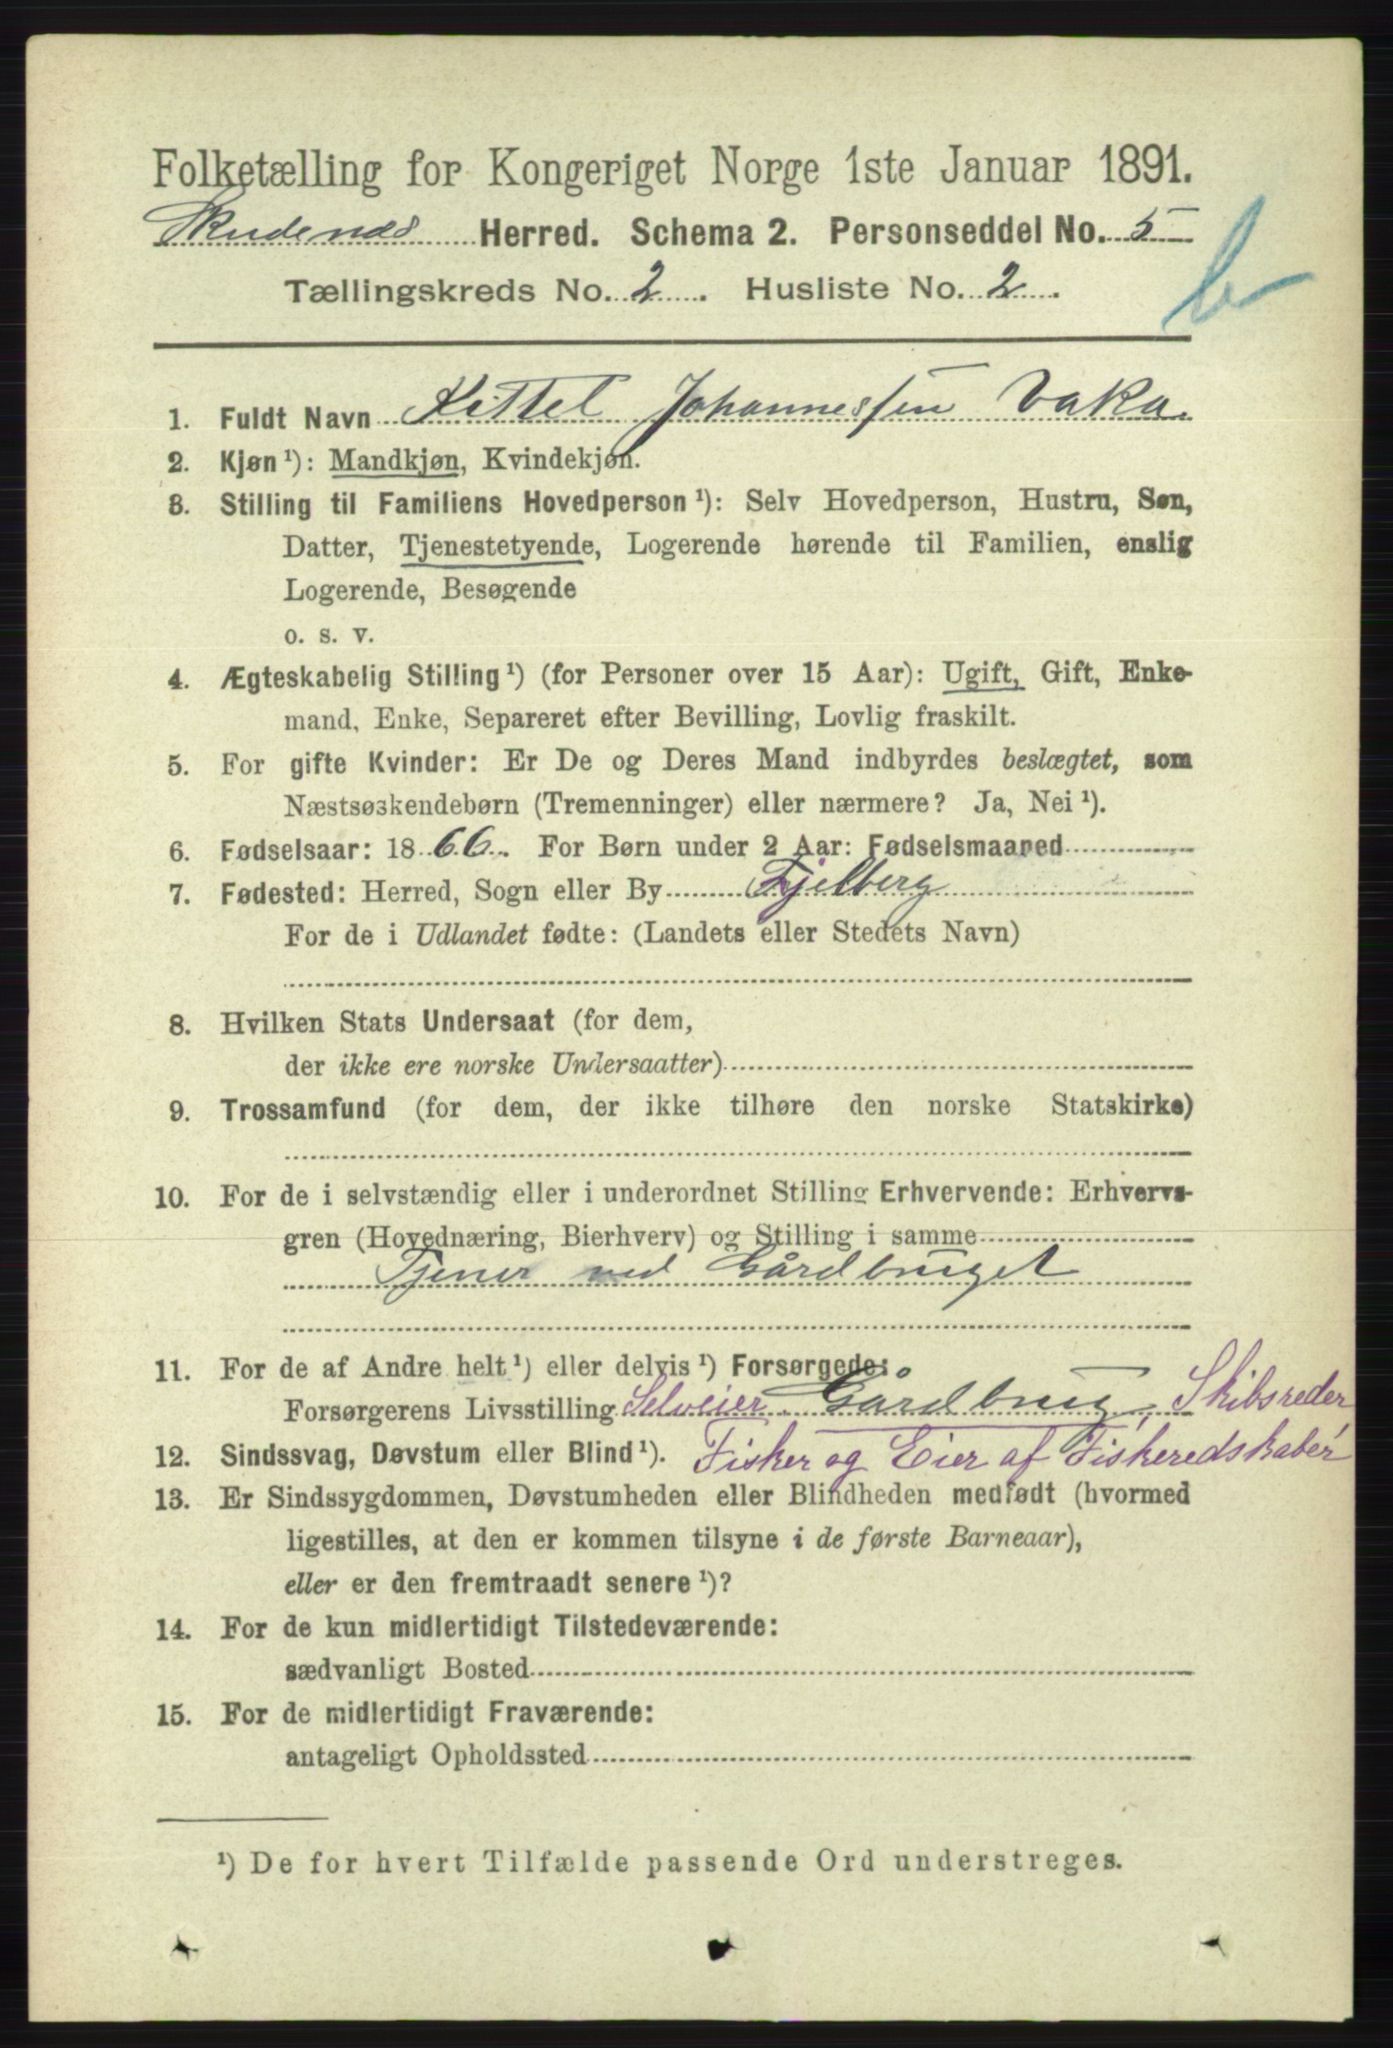 Folketælling for Kongeriget Norge 1ste Januar 1891.
Skudenæs Herred. Schema 2. Personseddel No. 5
Tællingskreds No. 2. Husliste No. 2.
b
1. Fuldt Navn Kittel Johannessen Vaka.
2. Kjøn ¹): Mandkjøn, Kvindekjøn.
3. Stilling til Familiens Hovedperson ¹): Selv Hovedperson, Hustru, Søn,
Datter, Tjenestetyende, Logerende hørende til Familien, enslig
Logerende, Besøgende
o. s. v.
4. Ægteskabelig Stilling ¹) (for Personer over 15 Aar): Ugift, Gift, Enke-
mand, Enke, Separeret efter Bevilling, Lovlig fraskilt.
5. For gifte Kvinder: Er De og Deres Mand indbyrdes beslægtet, som
Næstsøskendebørn (Tremenninger) eller nærmere? Ja, Nei ¹).
6. Fødselsaar: 1866. For Børn under 2 Aar: Fødselsmaaned
7. Fødested: Herred, Sogn eller By Fjelberg
For de i Udlandet fødte: (Landets eller Stedets Navn)
8. Hvilken Stats Undersaat (for dem,
der ikke ere norske Undersaatter)
9. Trossamfund (for dem, der ikke tilhøre den norske Statskirke)
10. For de i selvstændig eller i underordnet Stilling Erhvervende: Erhvervs-
gren (Hovednæring, Bierhverv) og Stilling i samme
Tjener ved Gårdbruget
11. For de af Andre helt ¹) eller delvis ¹) Forsørgede:
Forsørgerens Livsstilling Selveier. Gårdbrug, Skibsreder
12. Sindssvag, Døvstum eller Blind ¹). Fisker og Eier af Fiskeredskaber
13. Er Sindssygdommen, Døvstumheden eller Blindheden medfødt (hvormed
ligestilles, at den er kommen tilsyne i de første Barneaar),
eller er den fremtraadt senere ¹)?
14. For de kun midlertidigt Tilstedeværende:
sædvanligt Bosted
15. For de midlertidigt Fraværende:
antageligt Opholdssted
¹) De for hvert Tilfælde passende Ord understreges.